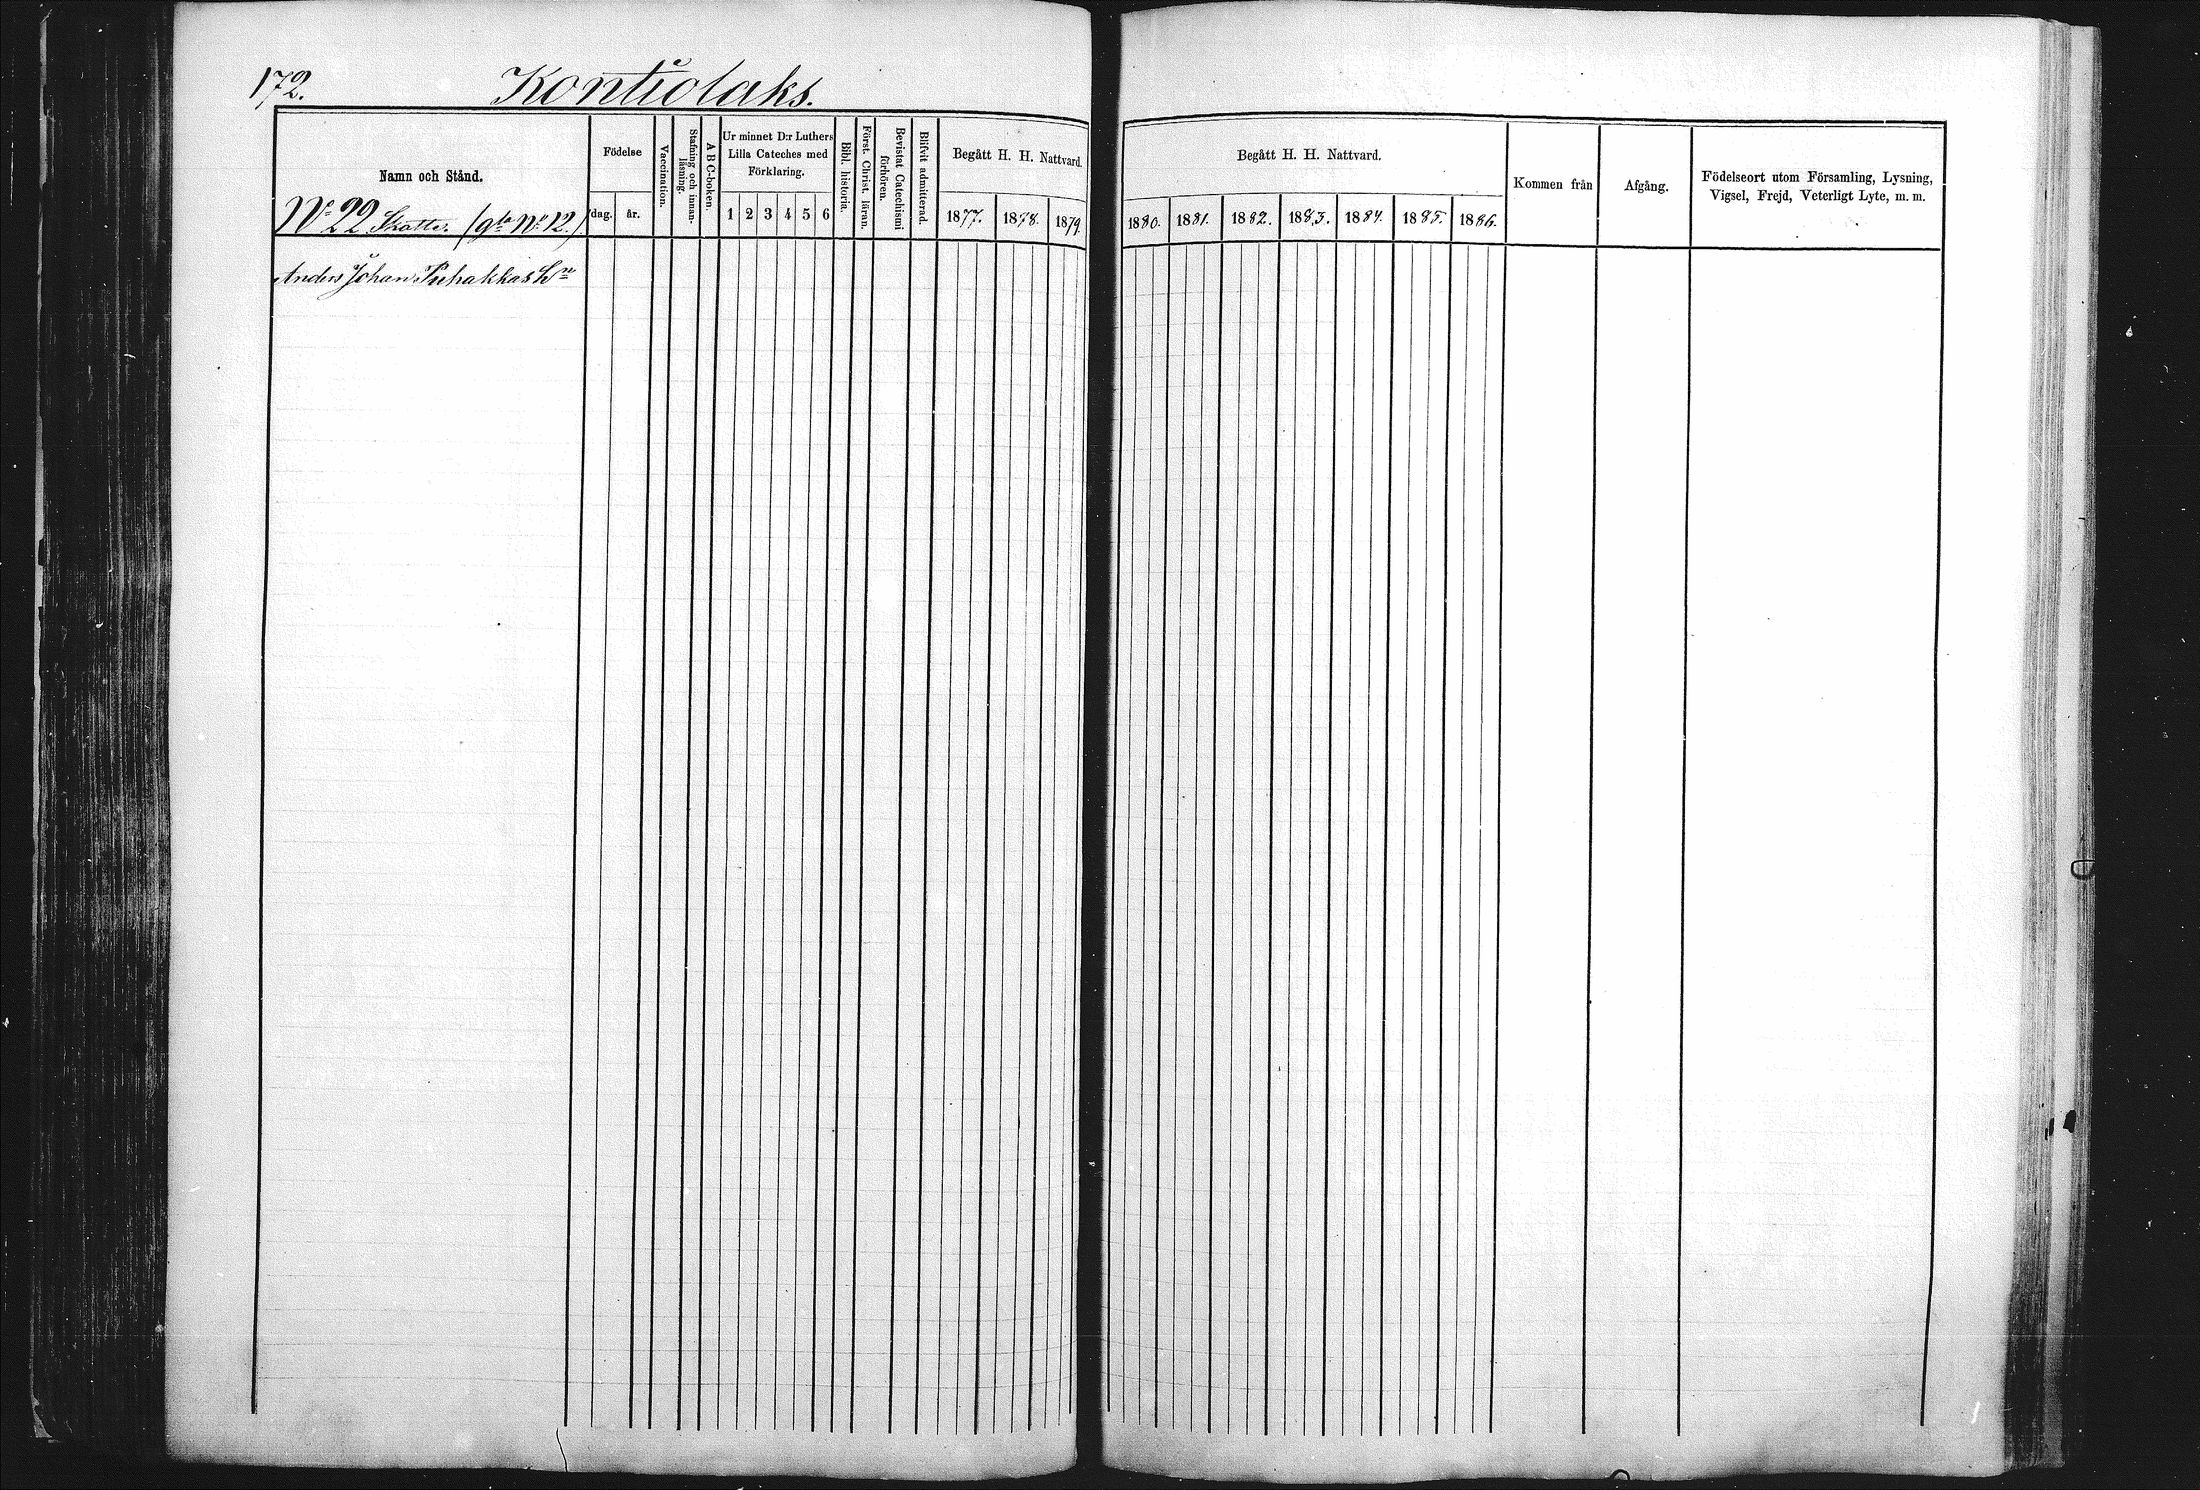 172. Kontiolaks.
Namn och Stånd.
Nº 22 Skatte. (gla Nº 12.)
Födelse
dag. år.
Vaccination.
Stafning och innan-
läsning.
A B C-boken.
Ur minnet D:r Luthers
Lilla Cateches med
Förklaring.
1 2 3 4 5 6
Bibl. historia.
Först. Christ. läran.
Bevistat Catechismi
förhören.
Blifvit admitterad.
Begått H. H. Nattvard.
1877. 1878. 1879.
Begått H. H. Nattvard.
1880. 1881. 1882. 1883. 1884. 1885. 1886.
Kommen från
Afgång.
Födelseort utom Församling, Lysning,
Vigsel, Frejd, Veterligt Lyte, m. m.
Anders Johan Puhakkas